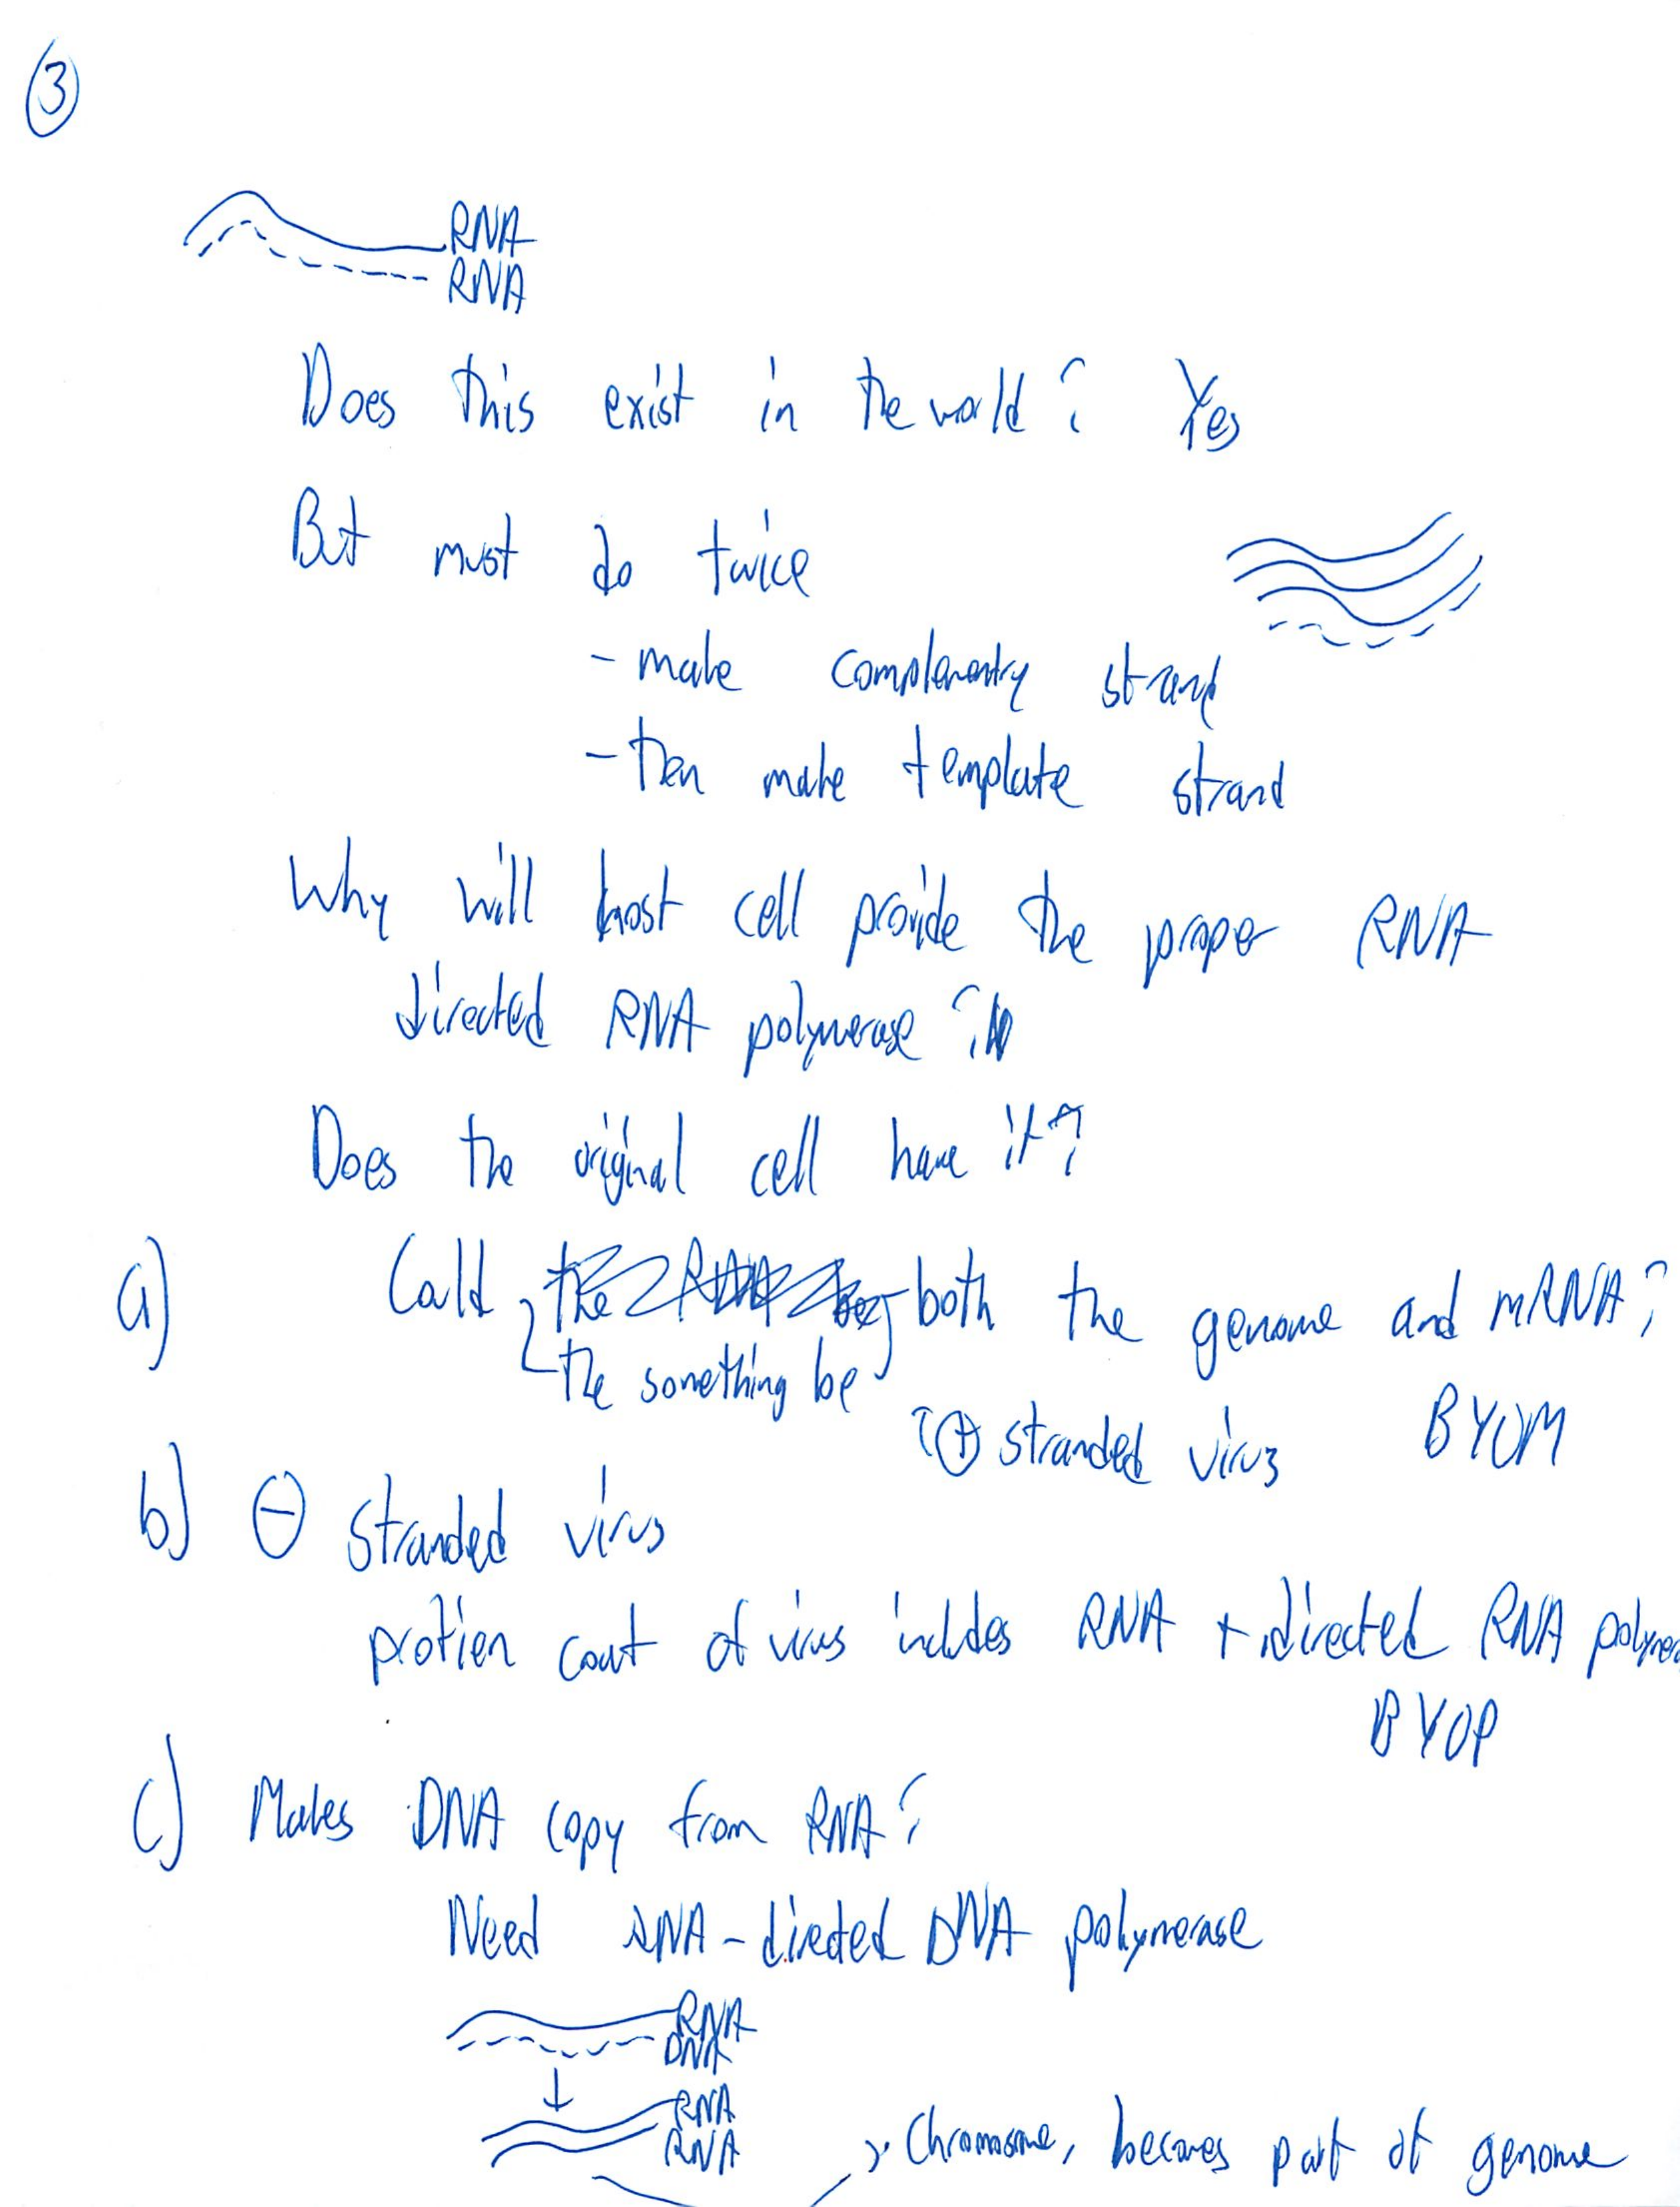 3
RNA
RNA
Does this exist in the world? Yes
But must do twice
- make complementry strand
- then make template strand
Why will host cell provide the proper RNA
directed RNA polymerase?
Does the original cell have it?
a) Could the something be both the genome and mRNA?
⊕ stranded virus BYOM
b) ⊖ stranded virus
protien coat of virus includes RNA directed RNA polymer
BYOP
c) Makes DNA copy from RNA?
Need RNA-directed DNA polymerase
RNA
DNA
RNA
RNA
Chromosome, becomes part of genome